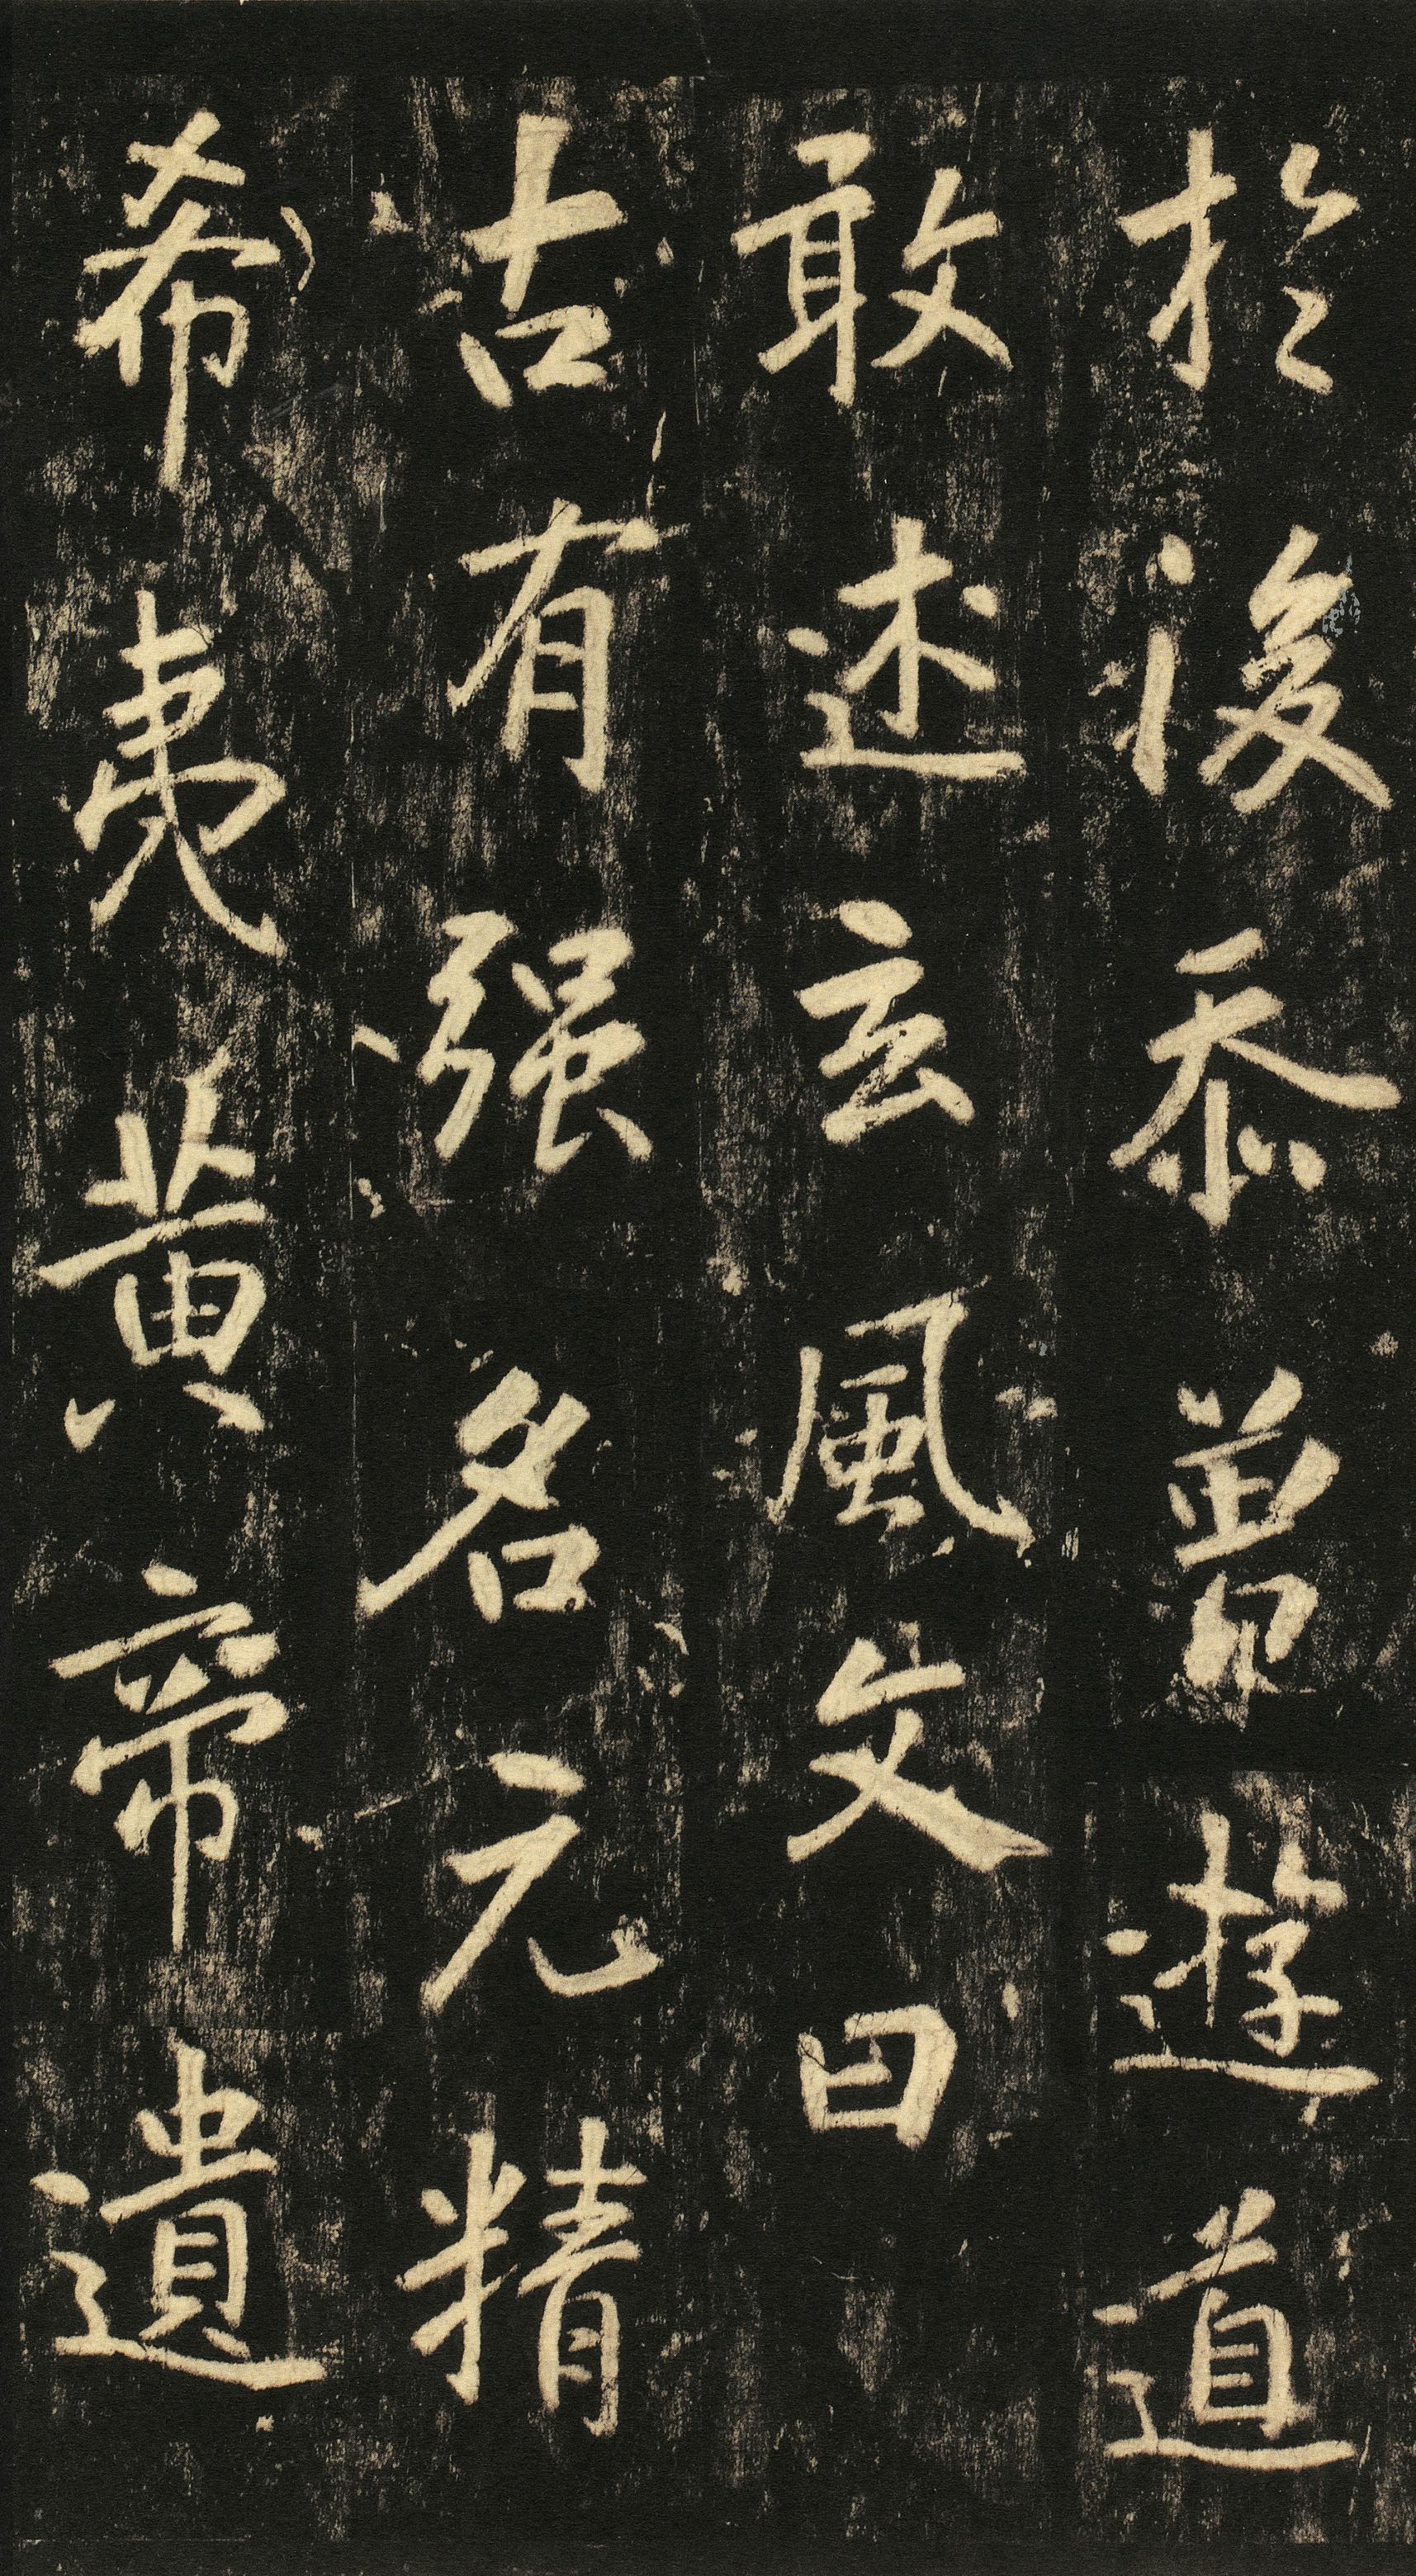 於後忝曽遊道
敢述玄風文曰
古有强名元精
希夷黄帝遺